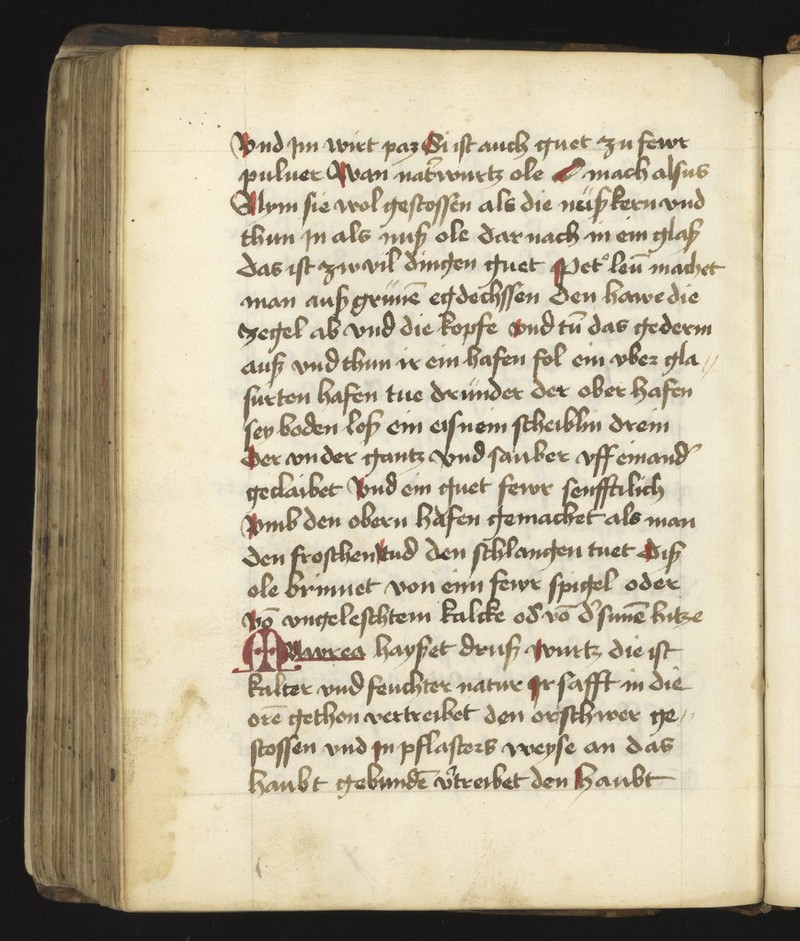 Vnd im wirt paz Si ist auch guet zu fewr
puluer Wan naterwurtz ole mach alsus
Nym sie wol gestossen als die nüßkern vnd
thun in als nuß ole dar nach in ein glaß
das ist zw vil dingen guet Pet° leu̅ machet
man auß grüne̅ egdechssen den hawe die
zegel ab vnd die kopfe vnd tu̅ das gederm
auß vnd thun ir ein hafen fol ein vber gla//
surten hafen tue drunder der ober hafen
sey boden loß ein eisnein scheiblin drein
Der vnder gantz vnd sauber vff einand
geclaibet Vnd ein guet fewr senfftilich
Vmb den obern hafen gemachet als man
den froschen vnd den schlangen tuet Diß
ole brinnet von einn fewr spigel oder
vo̅ vngeleschtem kalcke od vo̅ d sunne̅ hitze
hayset druß wurtz die ist
kalter vnd feuchter natur Ir safft in die
ore̅ gethon vertreibet den orschwer ge//
stossen vnd in pflasters weyse an das
haubt gebunde̅ vtreibet den haubt